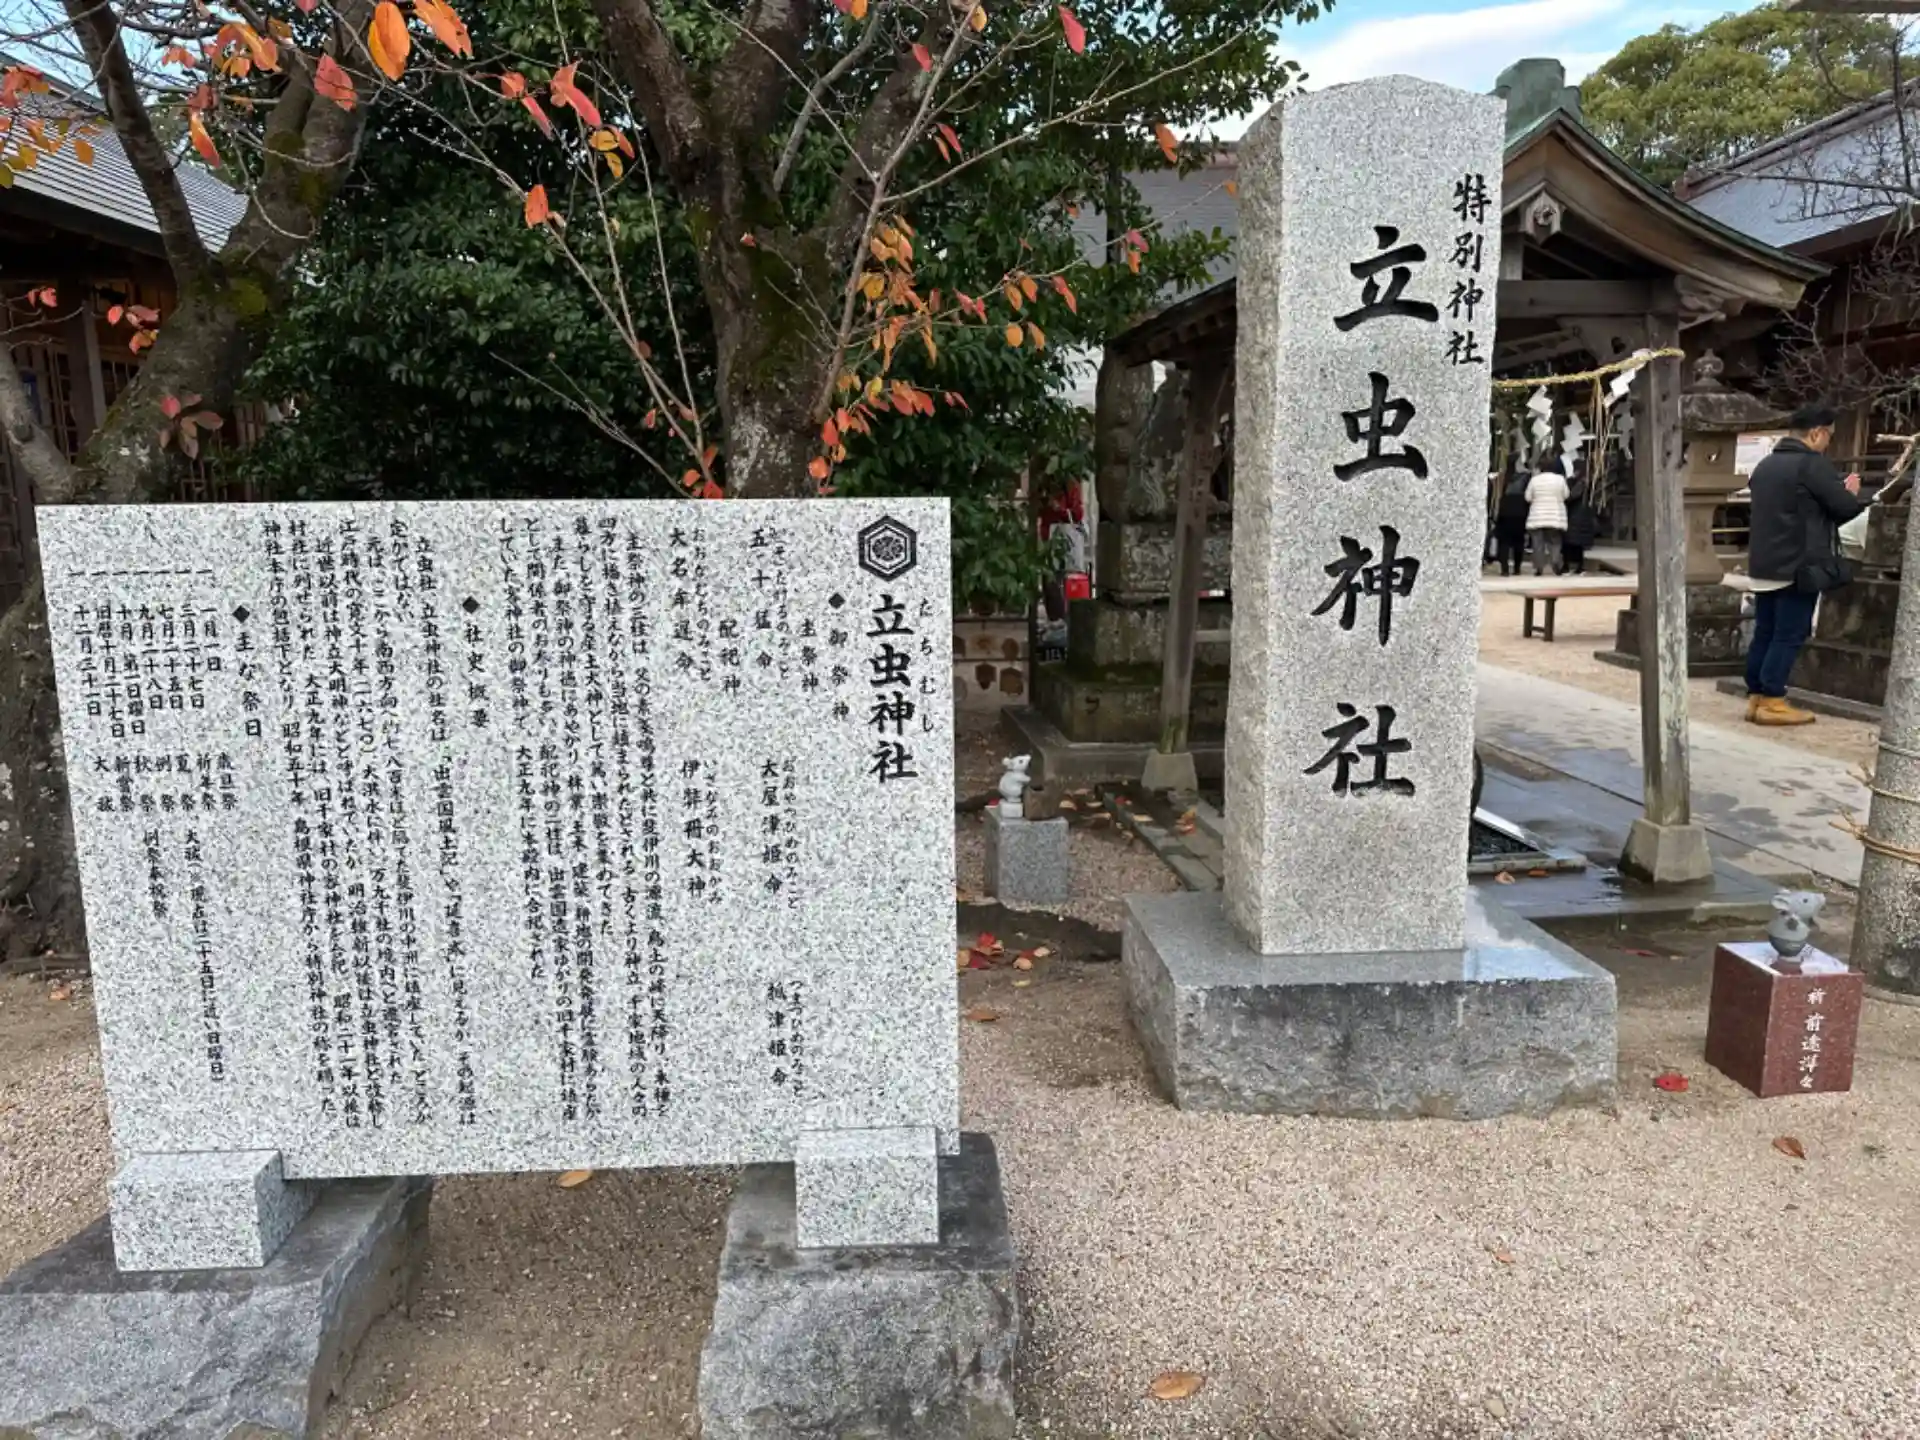 特別神社
立虫神社
立虫神社
たちむし
◆御祭神
主祭神
五十猛命
いそたけるのみこと
大屋津姫命
おおやつひめのみこと
抓津姫命
つまつひめのみこと
配祀神
大名牟遅命
おおなむちのみこと
伊弉冊大神
いざなみのおおかみ
主祭神の三柱は、父の素戔嗚尊と共に斐伊川の源流、鳥上の峰に天降り、木種を
四方に播き植えながら当地に鎮まられたとされる。古くより神立、千家地域の人々の
暮らしを守る産土大神として篤い崇敬を集めてきた。
また、御祭神の神徳にあやかり、林業、土木、建築、耕地の開発発展に霊験あらたか
として関係者のお参りも多い。配祀神の二柱は、出雲国造家ゆかりの旧千家村に鎮座
していた客神社の御祭神で、大正九年に本殿内に合祀された。
◆社史概要
立虫社、立虫神社の社名は、『出雲国風土記』や『延喜式』に見えるが、その起源は
定かではない。
元は、ここから南西方向、約七八百米ほど隔てた斐伊川の中洲に鎮座していた。ところが
江戸時代の寛文十年（一六七〇）大洪水に伴い、万九千社の境内へと遷宮された。
近世以前は神立大明神などと呼ばれていたが、明治維新以後は立虫神社と改称し
村社に列せられた。大正九年には、旧千家村の客神社を合祀、昭和二十一年以後は
神社本庁の包括下となり、昭和五十年、島根県神社庁から特別神社の称を賜った。
◆主な祭日
一、一月一日 歳旦祭
一、三月二十七日 祈年祭
一、七月二十五日 夏祭 大祓※現在は二十五日に近い日曜日
一、九月二十八日 例祭
一、十月 第一日曜日 秋祭 例祭奉祝祭
一、旧暦十月二十七日 新嘗祭
一、十二月三十一日 大祓
祈 前途洋々